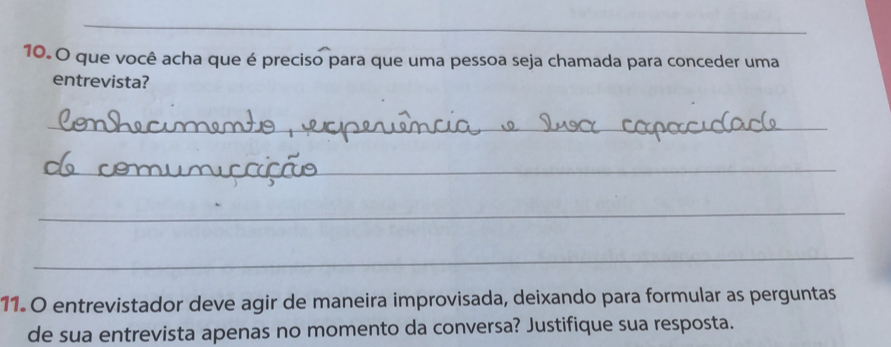 10. O que você acha que é preciso para que uma pessoa seja chamada para conceder uma
entrevista?
Conhecimento, experiência e sua capacidade
de comunicação
11. O entrevistador deve agir de maneira improvisada, deixando para formular as perguntas
de sua entrevista apenas no momento da conversa? Justifique sua resposta.